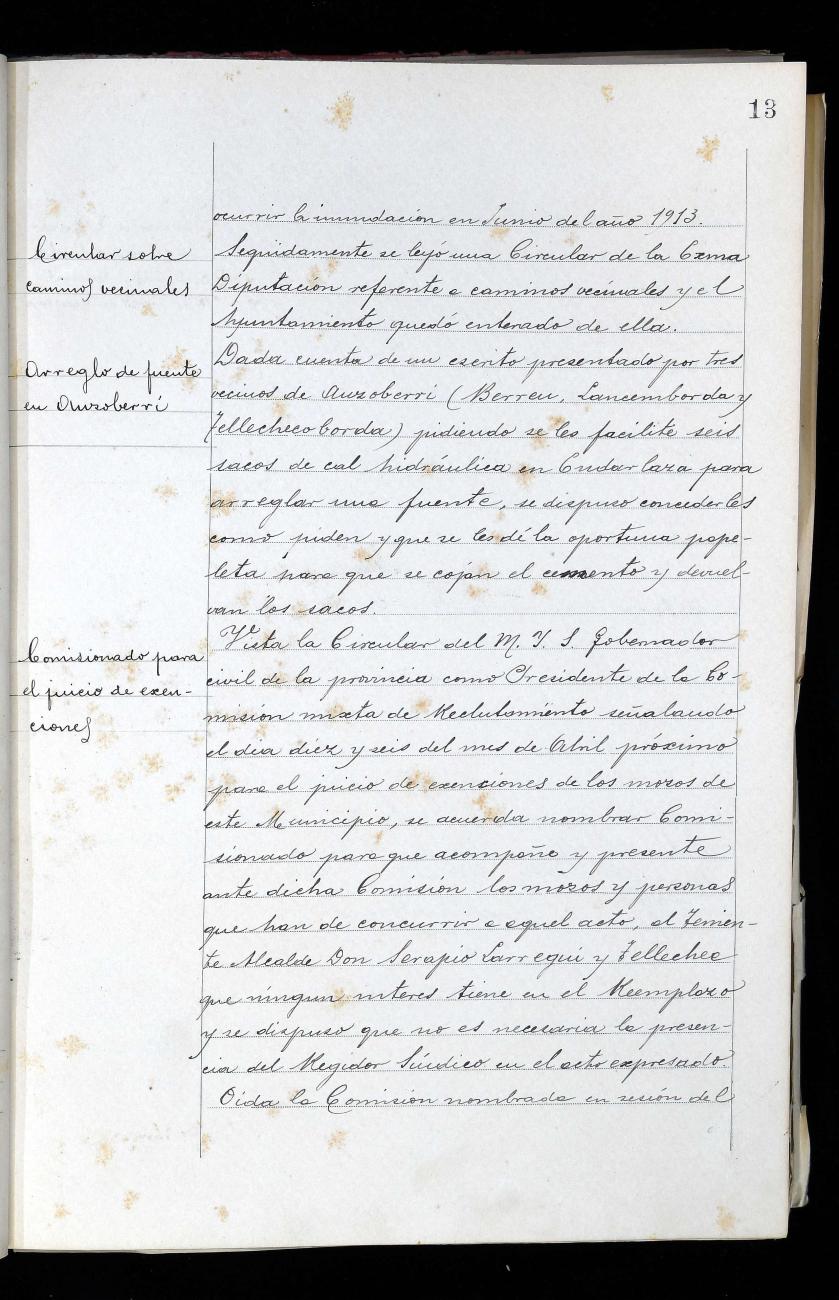 13
ocurrir la inundación en Junio del año 1913.
Circular sobre
caminos vecinales
Seguidamente se leyó una Circular de la Exma
Diputación referente a caminos vecinales y el
Ayuntamiento quedó enterado de ella.
Arreglo de fuente
en Auzoberri
Dada cuenta de un escrito presentado por tres
vecinos de Auzoberri (Berreu, Lancemborda y
Tellechecoborda) pidiendo se les facilite seis
sacos de cal hidráulica en Endarlaza para
arreglar una fuente, se dispuso concederles
como piden y que se les dé la oportuna pape-
leta para que se cojan el cemento y devuel-
van los sacos.
Comisionado para
el juicio de exen-
ciones
Vista la Circular del M. Y. S Gobernador
civil de la provincia como Presidente de la Co-
misión mixta de Reclutamiento señalando
el dia diez y seis del mes de Abril próximo
para el juicio de exenciones de los mozos de
este Municipio, se acuerda nombrar Comi-
sionado para que acompañe y presente
ante dicha Comisión los mozos y personas
que han de concurrir a aquel acto, al Tenien-
te Alcalde Don Serapio Larregui y Tellechea
que ningun interes tiene en el Reemplazo
y se dispuso que no es necesaria la presen-
cia del Regidor Síndico en el acto expresado.
Oida la Comisión nombrada en sesión del